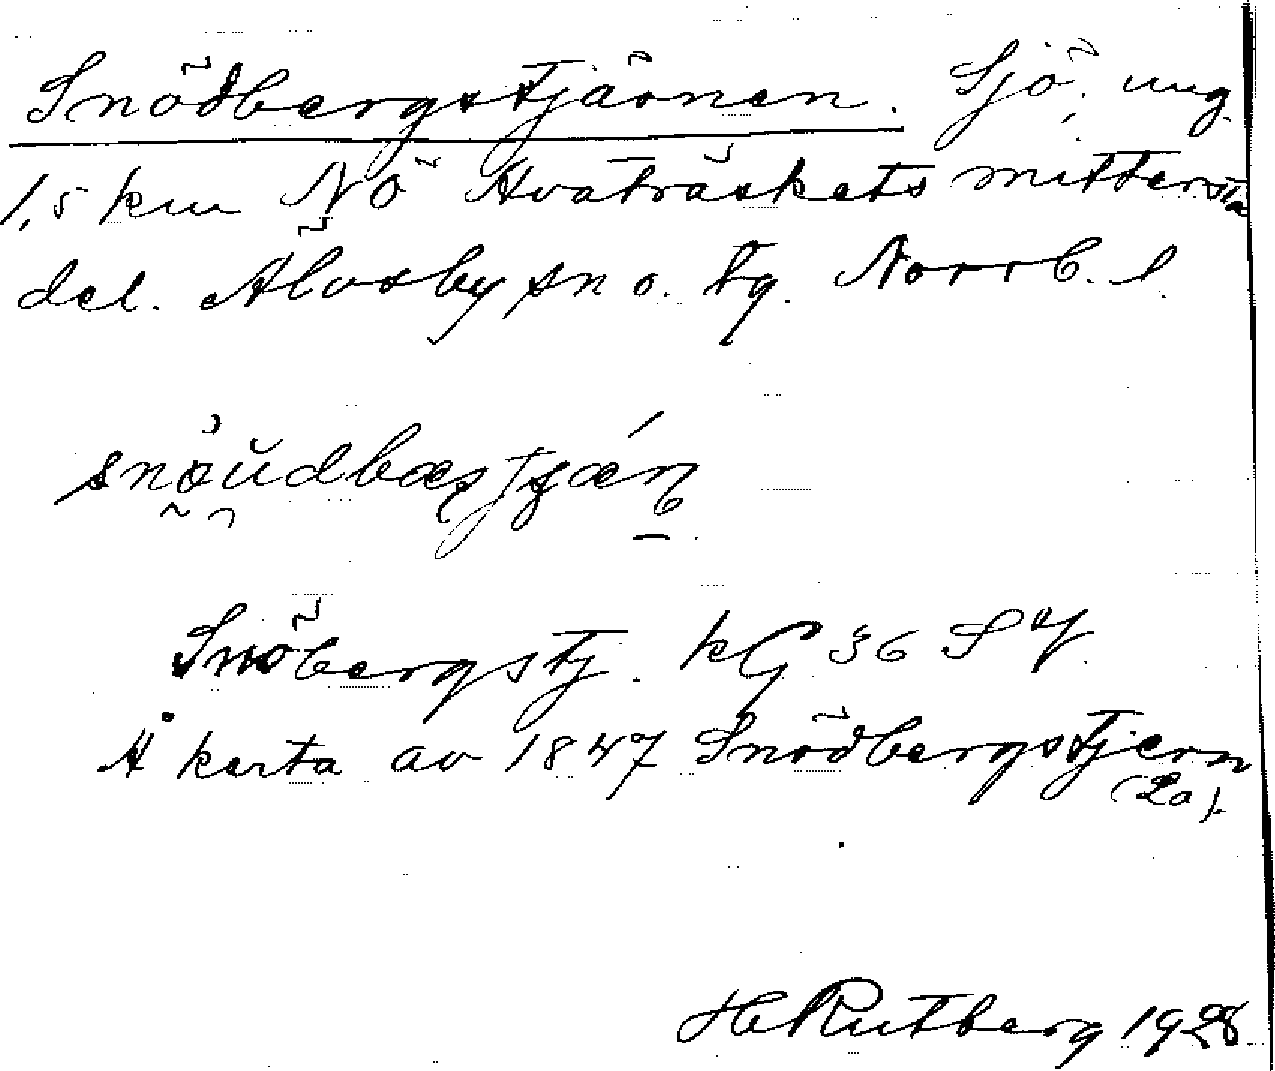 Snödbergstjärnen. Sjö, ung.
1,5 km NÖ Hvaträskets mittersta
del. Älvsby sn o. tg. Norrb. l.
snöŭdbæstjǽn
Snöbergstj. kG 36 SV
Å karta av 1847 Snödbergstjern
(La).
H Rutberg 1928